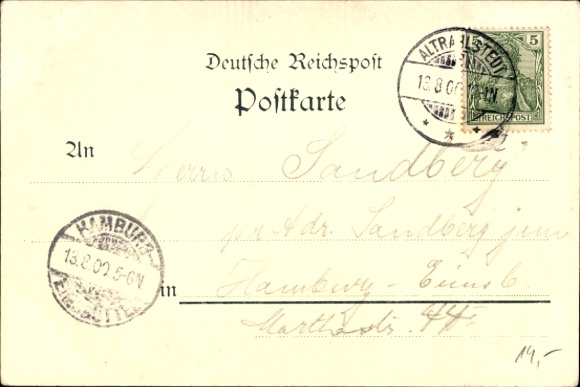 Deutsche Reichspost
Postkarte
ALTRAHLSTEDT
13.8.00
5
REICHSPOST
An Herrn Sandberg
pr Adr. Sandberg jun
HAMBURG
13.8.00. 5-6N
EIMSBÜTTEL
in Hamburg-Eimsb
Marthastr. 44
14,-